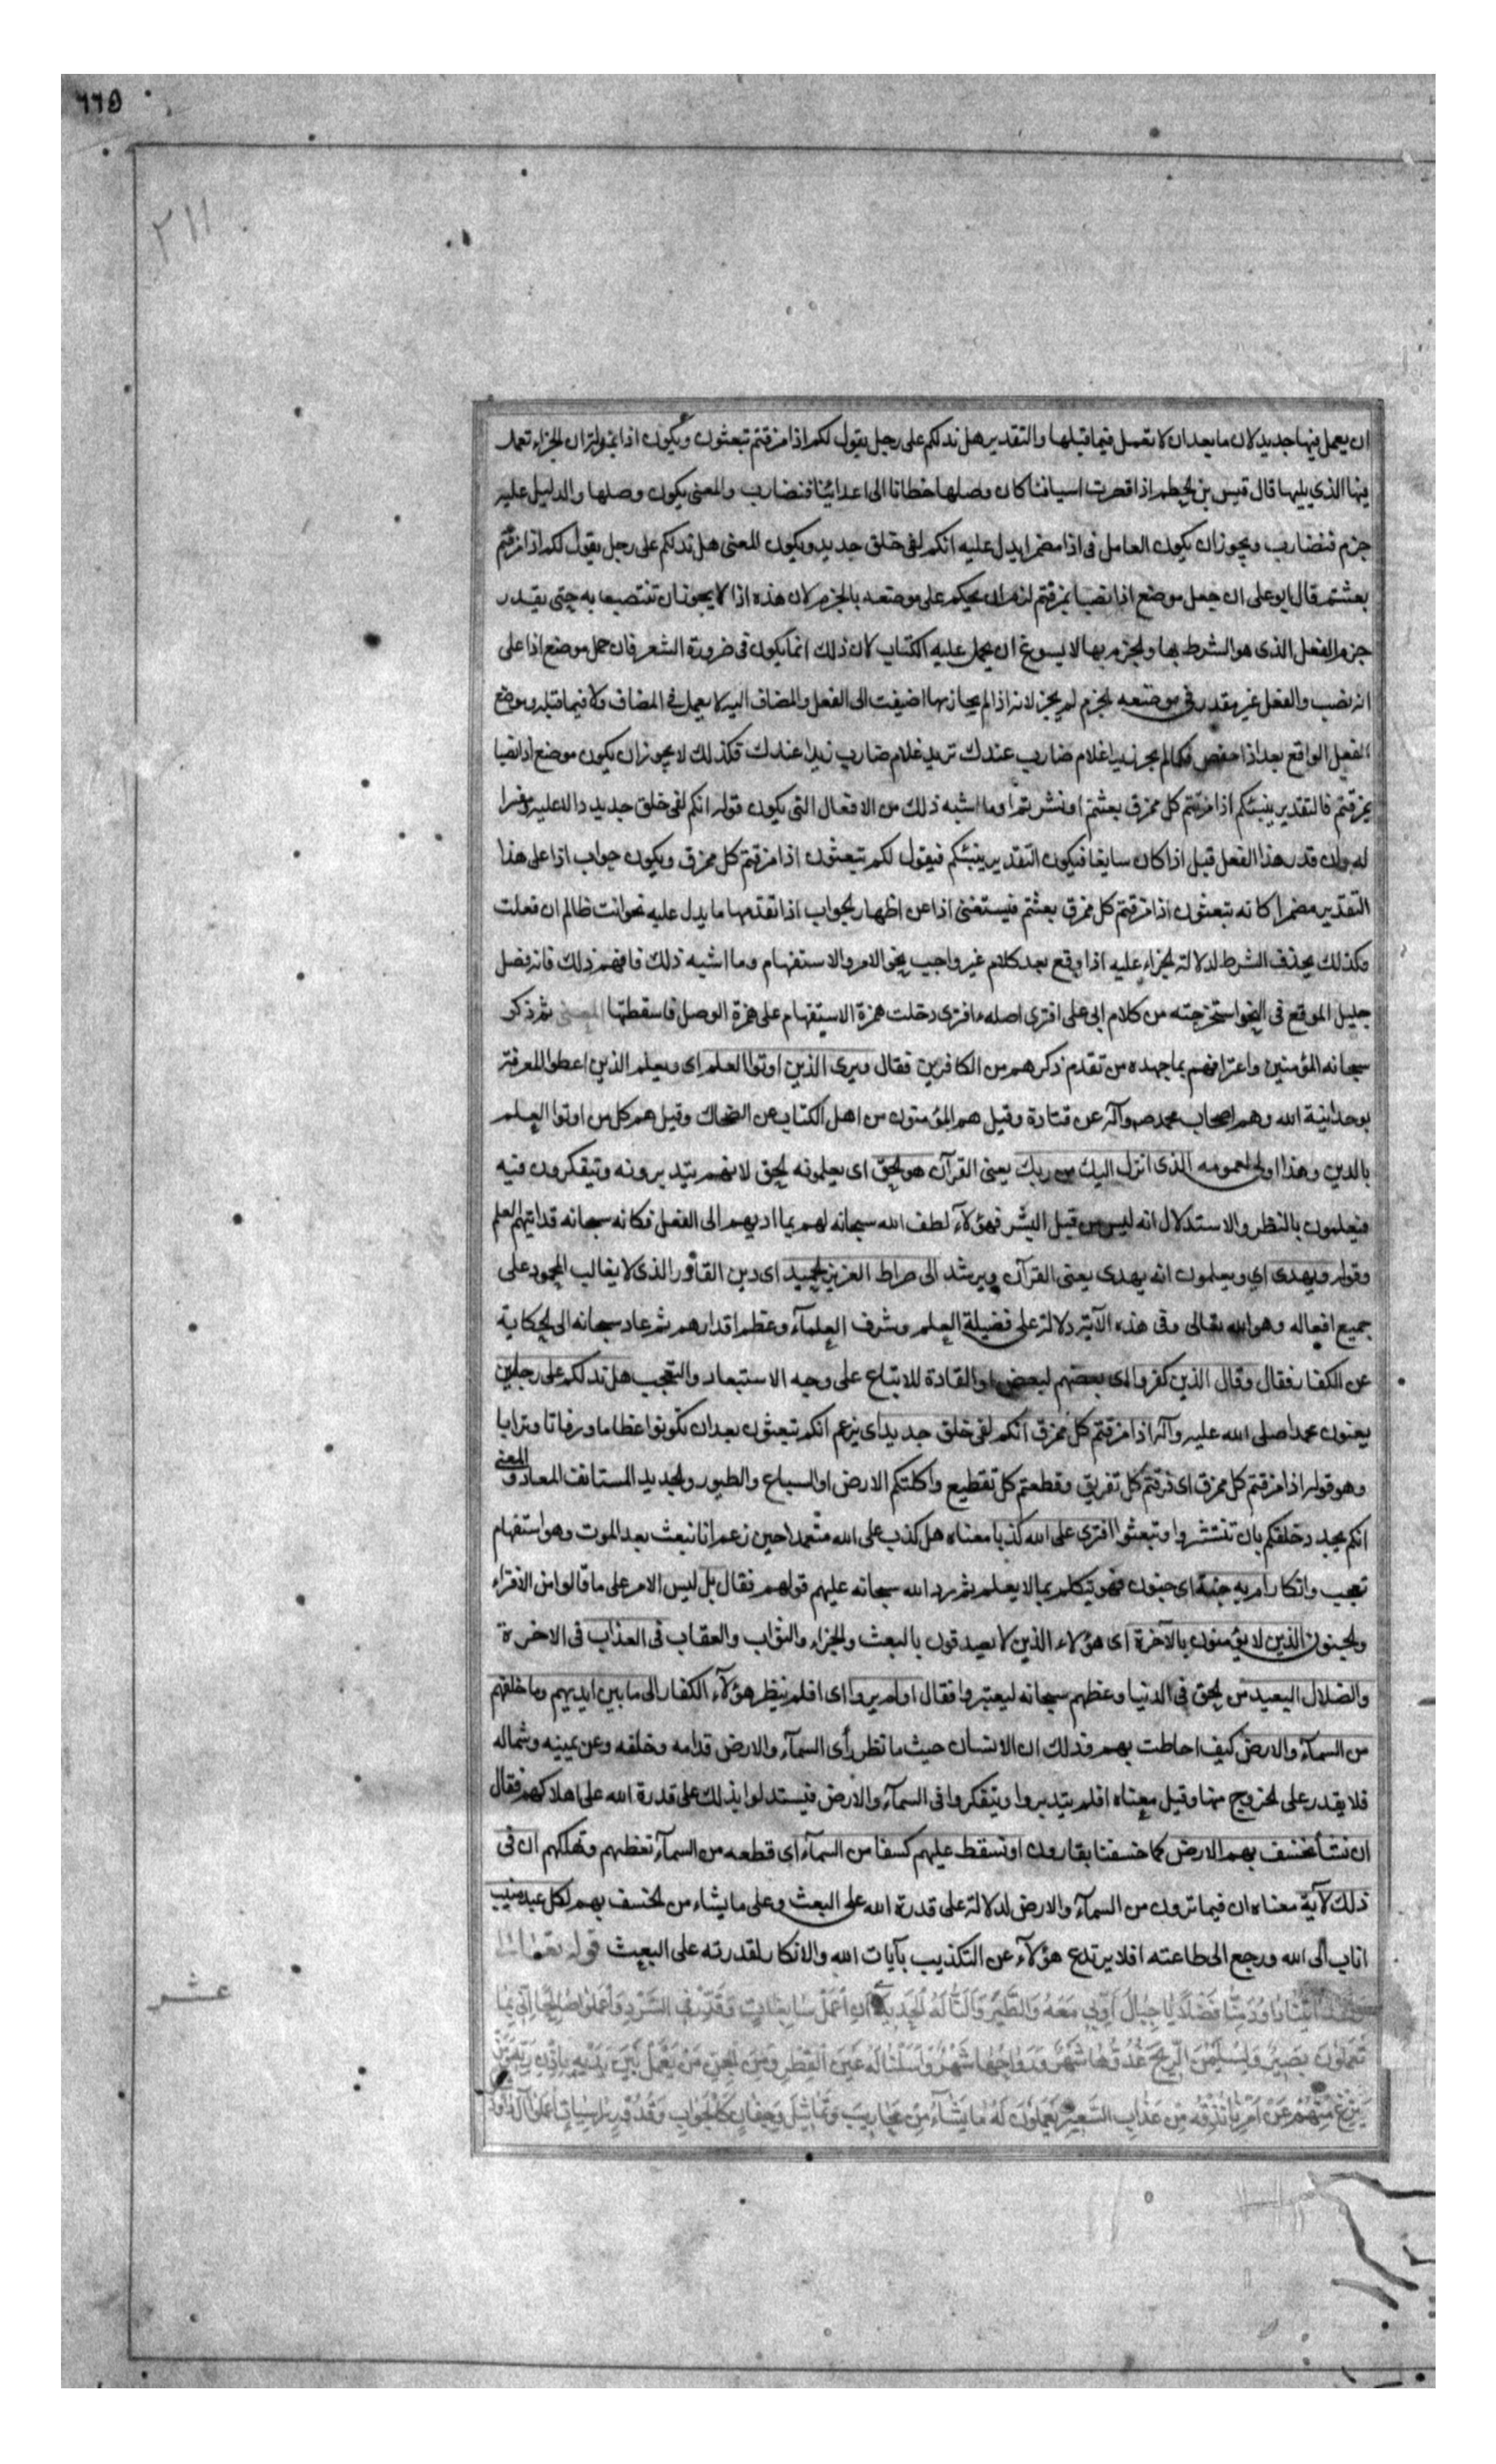 ٦٦٥
٢١١
ان يعمل فيها جديد لان ما بعد ان لا تعمل فيما قبلها والتقدير هل ندلكم على رجل يقول لكم اذا مزقتم تبعثون ويكون اذا بمنزلة ان الجزاء تعمل
فيها الذي يليها قال قيس بن الخطيم اذا قصرت اسيافنا كان وصلها خطانا الى اعدائنا فنضارب والمعنى يكون وصلها والدليل عليه
جزم فنضارب ويجوز ان يكون العامل في اذا مضمرا يدل عليه انكم لفي خلق جديد ويكون المعنى هل ندلكم على رجل يقول لكم اذا مزقتم
بعثتم قال ابو على ان جعل موضع اذا نصبا بمزقتم لزم ان يحكم على موضعه بالجزم لان هذه اذا لا يجوز ان تنتصب به حتى يقدر
جزم الفعل الذى هو الشرط بها والجزم بها لا يسوغ ان يحمل عليه الكتاب لان ذلك انما يكون في ضرورة الشعر فان حمل موضع اذا على
انه نصب والفعل غير مقدر في موضعه الجزم لم يجز لانه اذا لم يجاز بها اضيفت الى الفعل والمضاف اليه لا يعمل في المضاف ولا فيما قبله وموضع
الفعل الواقع بعد اذا خفض فكما لم يجز زيدا غلام ضارب عندك تريد غلام ضارب زيدا عندك فكذلك لا يجوز ان يكون موضع اذا نصبا
بمزقتم فالتقدير ينبئكم اذا مزقتم كل ممزق بعثتم او نشرتم او ما اشبه ذلك من الافعال التى يكون قوله انكم لفي خلق جديد دالا عليه ومفسرا
له وان قدر هذا الفعل قبل اذا كان سايغا فيكون التقدير ينبئكم فيقول لكم تبعثون اذا مزقتم كل ممزق ويكون جواب اذا على هذا
التقدير مضمرا كانه تبعثون اذا مزقتم كل ممزق بعثتم فيستغنى اذا عن اظهار الجواب اذا تقدمها ما يدل عليه نحو انت ظالم ان فعلت
وكذلك يحذف الشرط لدلالة الجزاء عليه اذا وقع بعد كلام غير واجب نحو الامر والاستفهام وما اشبه ذلك فافهم ذلك فانه فصل
جليل الموقع في النحو استخرجته من كلام ابى على افترى اصله ءافترى دخلت همزة الاستفهام على همزة الوصل فاسقطتها المعنى ثم ذكر
سبحانه المؤمنين واعترافهم بما جحده من تقدم ذكرهم من الكافرين فقال ويرى الذين اوتوا العلم اى ويعلم الذين اعطوا المعرفة
بوحدانية الله وهم اصحاب محمد صم وآله عن قتادة وقيل هم المؤمنون من اهل الكتاب عن الضحاك وقيل هم كل من اوتوا العلم
بالدين وهذا اولى لعمومه الذى انزل اليك من ربك يعنى القرآن هو الحق اى يعلمونه الحق لانهم يتدبرونه ويتفكرون فيه
فيعلمون بالنظر والاستدلال انه ليس من قبل البشر فهؤلآء لطف الله سبحانه لهم بما اديهم الى الفعل فكانه سبحانه قد اتيهم العلم
وقوله ويهدى اي ويعلمون انه يهدى يعنى القرآن ويرشد الى صراط العزيز الحميد اى دين القادر الذى لا يغالب المحمود على
جميع افعاله وهو الله تعالى وفى هذه الآية دلالة على فضيلة العلم وشرف العلمآء وعظم اقدارهم ثم عاد سبحانه الى الحكاية
عن الكفار فقال وقال الذين كفروا اى بعضهم لبعض او القادة للاتباع على وجه الاستبعاد والتعجب هل ندلكم على رجل
يعنون محمدا صلى الله عليه وآله اذا مزقتم كل ممزق انكم لفى خلق جديد اى يزعم انكم تبعثون بعد ان تكونوا عظاما ورفاتا وترابا
وهو قوله اذا مزقتم كل ممزق اى فرقتم كل تفريق وقطعتم كل تقطيع واكلتكم الارض او السباع والطيور والجديد المستانف المعاد والمعنى
انكم يجدد خلقكم بان تنشروا وتبعثوا افترى على الله كذبا معناه هل كذب على الله متعمدا حين زعم انا نبعث بعد الموت وهو استفهام
تعجب وانكار ام به جنة اى جنون فهو يتكلم بما لا يعلم ثم رد الله سبحانه عليهم قولهم فقال بل ليس الامر على ما قالوا من الافتراء
والجنون الذين لا يؤمنون بالآخرة اى هؤلاء الذين لا يصدقون بالبعث والجزاء والثواب والعقاب فى العذاب فى الاخرة
والضلال البعيد من الحق فى الدنيا وعظهم سبحانه ليعتبروا فقال اولم يروا اى افلم ينظر هؤلآء الكفار الى ما بين ايديهم وما خلفهم
من السمآء والارض كيف احاطت بهم وذلك ان الانسان حيث ما نظر رأى السمآء والارض قدامه وخلفه وعن يمينه وشماله
فلا يقدر على الخروج منها وقيل معناه افلم يتدبروا ويتفكروا فى السمآء والارض فيستدلوا بذلك على قدرة الله على اهلاكهم فقال
ان نشأ نخسف بهم الارض كما خسفنا بقارون او نسقط عليهم كسفا من السمآء اى قطعه من السمآء تغطيهم وتهلكهم ان فى
ذلك لآية معناه ان فيما ترون من السمآء والارض لدلالة على قدرة الله على البعث وعلى ما يشاء من الخسف بهم لكل عبد منيب
اناب الى الله ورجع الى طاعته افلا يرتدع هؤلآء عن التكذيب بآيات الله والانكار لقدرته على البعث قوله تعالى
وَلَقَدْ اٰتَيْنَا دَاوُدَ مِنَّا فَضْلًا يَا جِبَالُ اَوِّبِي مَعَهُ وَالطَّيْرَ وَاَلَنَّا لَهُ الْحَدِيدَ اَنِ اعْمَلْ سَابِغَاتٍ وَقَدِّرْ فِى السَّرْدِ وَاعْمَلُوا صَالِحًا اِنِّي بِمَا
تَعْمَلُونَ بَصِيرٌ وَلِسُلَيْمٰنَ الرِّيحَ غُدُوُّهَا شَهْرٌ وَرَوَاحُهَا شَهْرٌ وَاَسَلْنَا لَهُ عَيْنَ الْقِطْرِ وَمِنَ الْجِنِّ مَنْ يَعْمَلُ بَيْنَ يَدَيْهِ بِاِذْنِ رَبِّهِ وَمَنْ
يَزِغْ مِنْهُمْ عَنْ اَمْرِنَا نُذِقْهُ مِنْ عَذَابِ السَّعِيرِ يَعْمَلُونَ لَهُ مَا يَشَآءُ مِنْ مَحَارِيبَ وَتَمَاثِيلَ وَجِفَانٍ كَالْجَوَابِ وَقُدُورٍ رَاسِيَاتٍ اعْمَلُوا آلَ دَاوُدَ
عشر